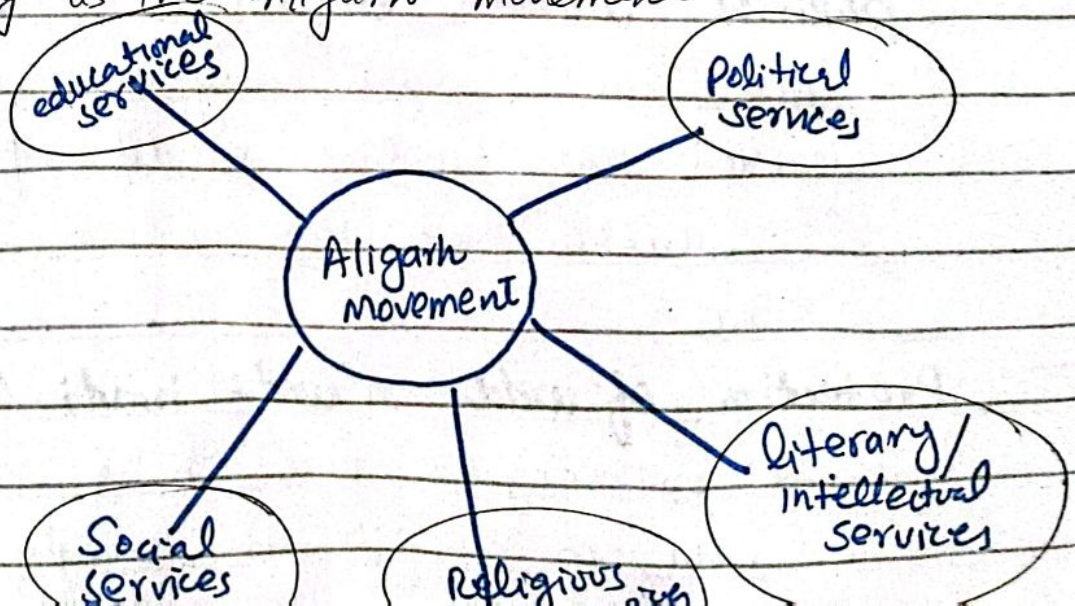 as the Aligarh movement
educational
services
Political
services
Aligarh
Movement
literary/
intellectual
services
Social
services
Religious